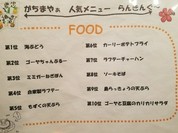 がちまやぁ 人気メニュー らんきんぐ
FOOD
第1位 海ぶどう
第2位 ゴーヤちゃんぷるー
第3位 ミミガーおさしみ
第4位 自家製ラフテー
第5位 もずくの天ぷら
第6位 カーリーポテトフライ
第7位 ラフテーチャーハン
第8位 ソーキそば
第9位 島らっきょうの天ぷら
第10位 ゴーヤと豆腐のカリカリサラダ